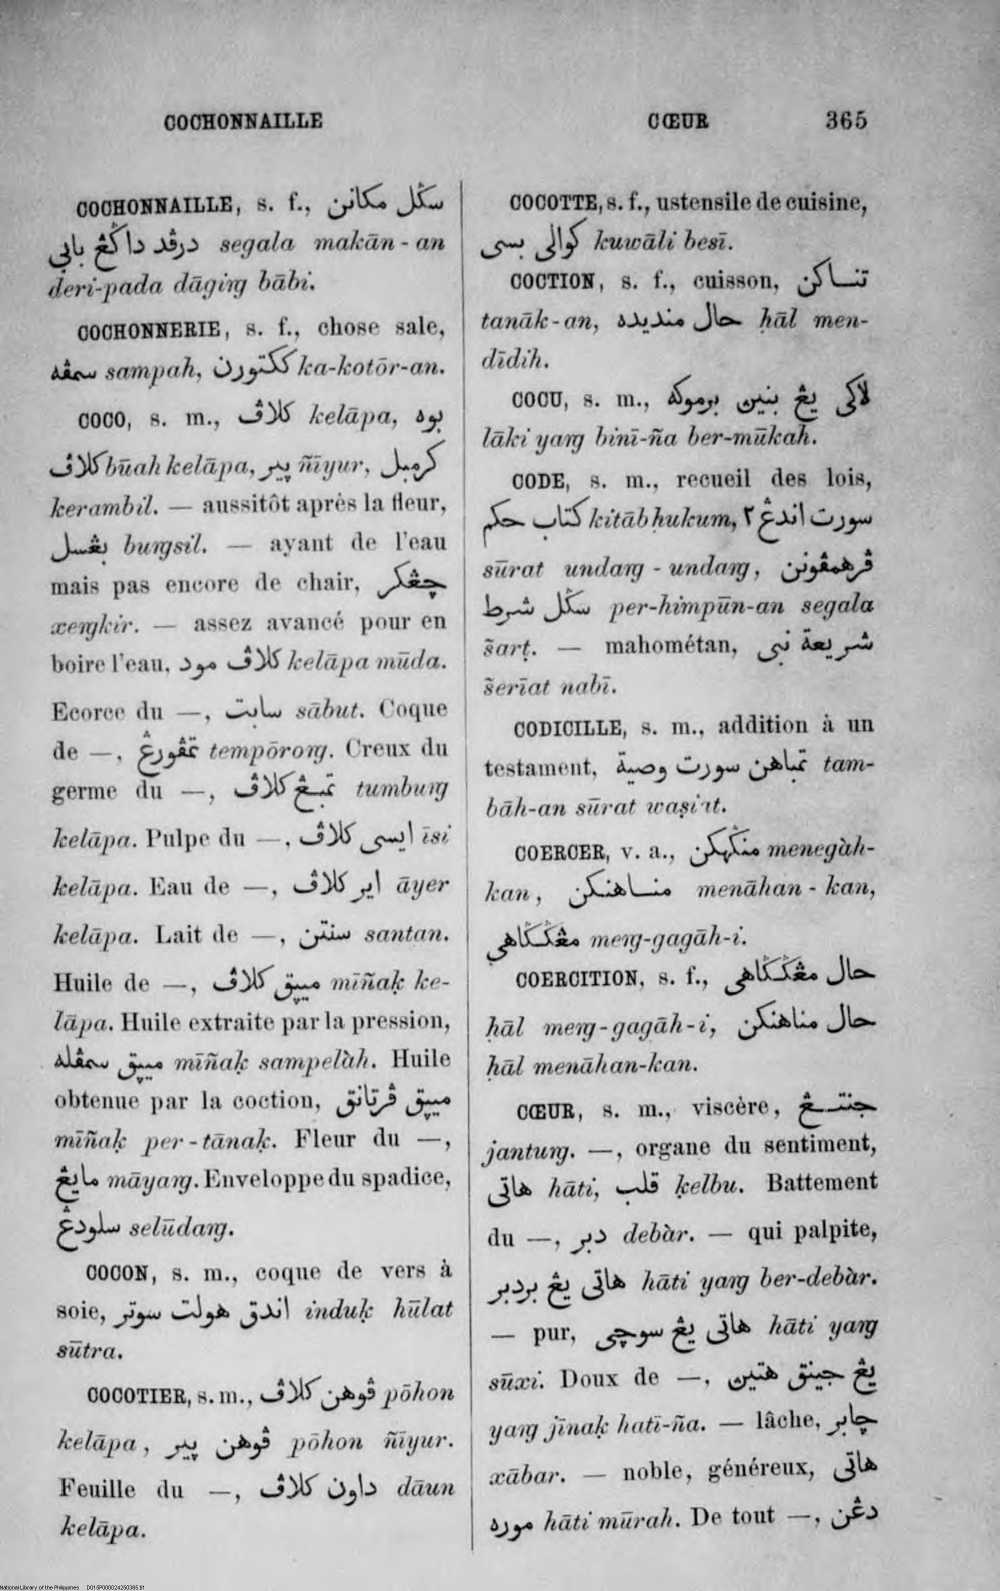 COCHONNAILLE
CŒUR 365
COCHONNAILLE, s. f., سڬل مكانن
درڤد داڬڠ بابي segala makān-an
deri-pada dāgirg bābi.
COCHONNERIE, s. f., chose sale,
سمڤه sampah, ككتورن ka-kotōr-an.
COCO, s. m., كلاڤ kelāpa, بوه
كلاڤ būah kelāpa, ڽير ñīyur, كرمبل
kerambil. — aussitôt après la fleur,
بڠسل burgsil. — ayant de l'eau
mais pas encore de chair, چڠكر
xergkir. — assez avancé pour en
boire l'eau, كلاڤ مود kelāpa mūda.
Ecorce du —, سابت sābut. Coque
de —, تمڤورڠ tempōrorg. Creux du
germe du —, تمبڠ كلاڤ tumburg
kelāpa. Pulpe du —, ايسى كلاڤ īsi
kelāpa. Eau de —, اير كلاڤ āyer
kelāpa. Lait de —, سنتن santan.
Huile de —, ميڽق كلاڤ mīñaḳ ke-
lāpa. Huile extraite par la pression,
ميڽق سمڤله mīñaḳ sampelàh. Huile
obtenue par la coction, ميڽق ڤرتانق
mīñaḳ per-tānaḳ. Fleur du —,
مايڠ māyarg. Enveloppe du spadice,
سلودڠ selūdarg.
COCON, s. m., coque de vers à
soie, اندق هولت سوتر induḳ hūlat
sūtra.
COCOTIER, s. m., ڤوهن كلاڤ pōhon
kelāpa, ڤوهن ڽير pōhon ñīyur.
Feuille du —, داون كلاڤ dāun
kelāpa.
COCOTTE, s. f., ustensile de cuisine,
كوالى بسى kuwāli besī.
COCTION, s. f., cuisson, تناكن
tanāk-an, حال منديده ḥāl men-
dīdih.
COCU, s. m., لاكى يڠ بنين برموكه
lāki yarg binī-ña ber-mūkah.
CODE, s. m., recueil des lois,
كتاب حكم kitāb ḥukum, سورت اندڠ ٢
sūrat undarg-undarg, ڤرهمڤونن
سڬل شرط per-himpūn-an segala
s̃arṭ. — mahométan, شريعة نبى
s̃erīat nabī.
CODICILLE, s. m., addition à un
testament, تمباهن سورت وصية tam-
bāh-an sūrat waṣīat.
COERCER, v. a., منڬهكن menegàh-
kan, مناهنكن menāhan-kan,
مڠڬڬاهي merg-gagāh-i.
COERCITION, s. f., حال مڠڬڬاهى
ḥāl merg-gagāh-i, حال مناهنكن
ḥāl menāhan-kan.
CŒUR, s. m., viscère, جنتڠ
janturg. —, organe du sentiment,
هاتى hāti, قلب ḳelbu. Battement
du —, دبر debàr. — qui palpite,
هاتى يڠ بردبر hāti yarg ber-debàr.
— pur, هاتى يڠ سوچى hāti yarg
sūxi. Doux de —, يڠ جينق هتين
yarg jīnaḳ hatī-ña. — lâche, چابر
xābar. — noble, généreux, هاتى
موره hāti mūrah. De tout —, دڠن
National Library of the Philippines